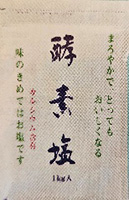 まろやかで とっても
おいしくなる
酵素塩
カルシウム含有
味のきめてはお塩です
1kg入